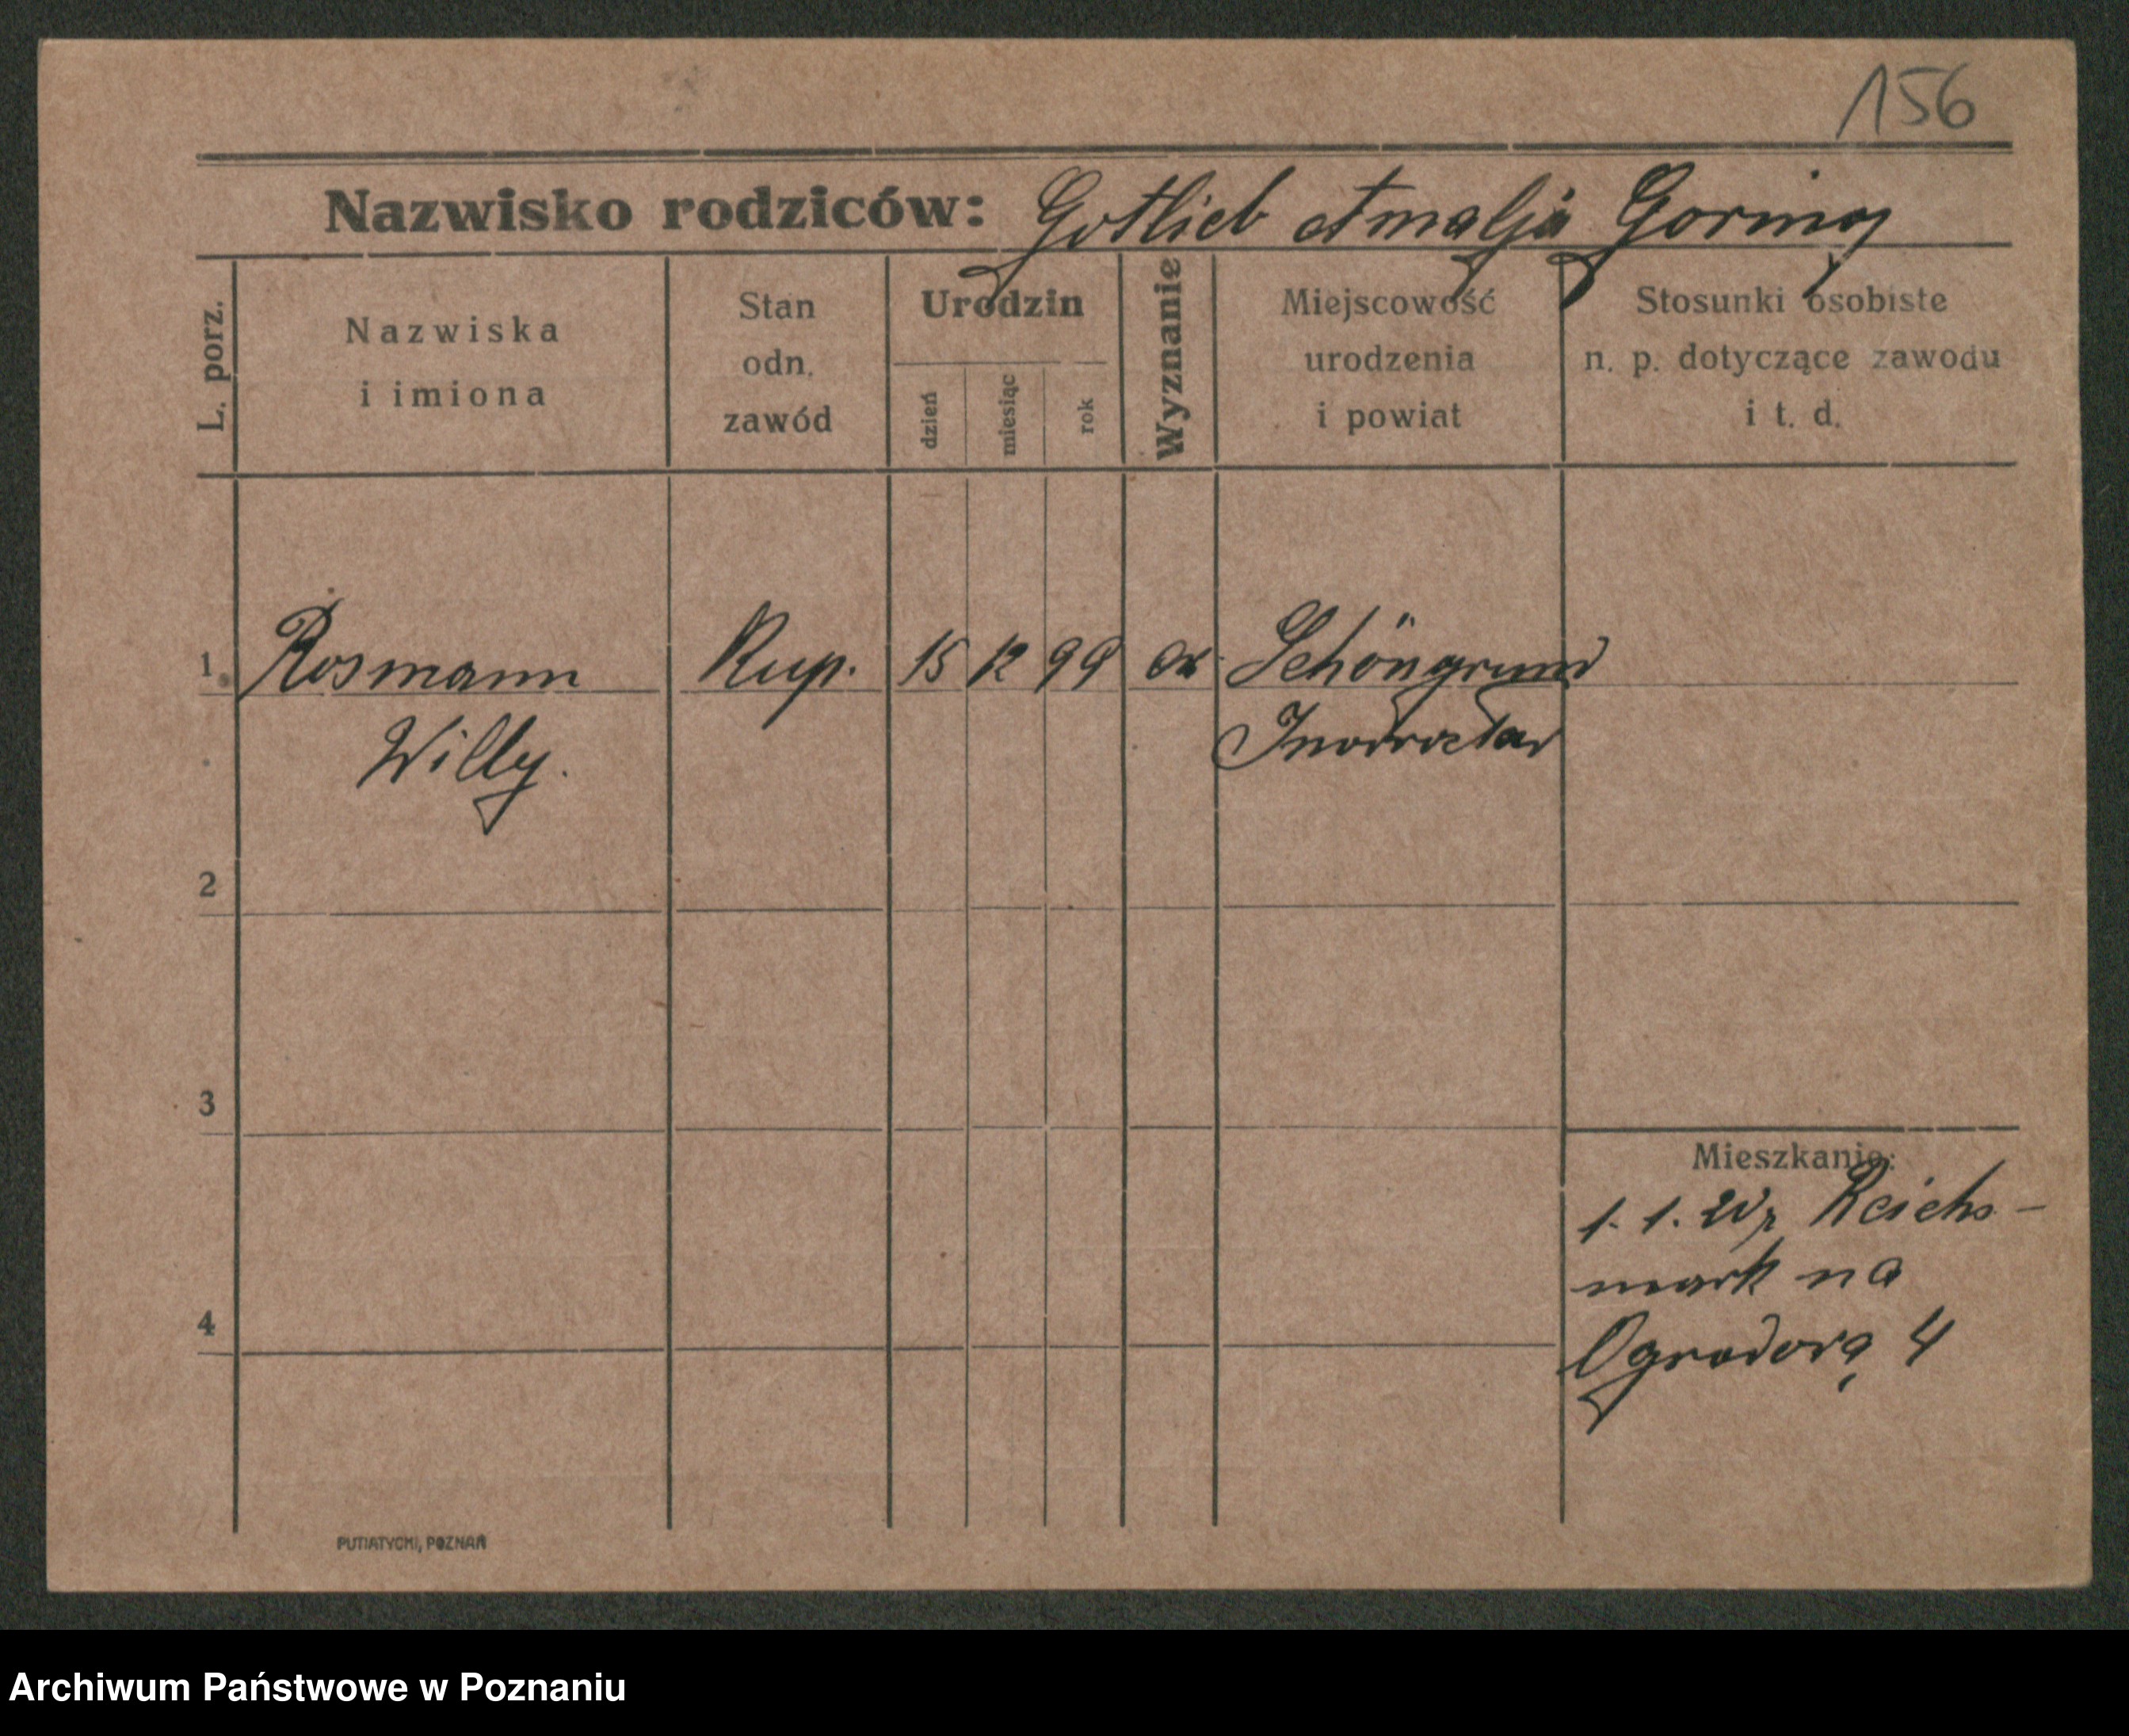 156
Nazwisko rodziców: Gotlieb Amalja
L. porz.
Nazwiska
i imiona
Stan
odn.
zawód
Urodzin
dzień
miesiąc
rok
Wyznanie
Miejscowość
urodzenia
i powiat
Stosunki osobiste
n. p. dotyczące zawodu
i t. d.
1 Rosmann Kup. 15 12 99 Schöngrund
Willy. Inowrocław
2
3
4
Mieszkanie:
1. 1. Reichs-
mark na
Ogrodową 4
PUTIATYCKI, POZNAŃ
Archiwum Państwowe w Poznaniu